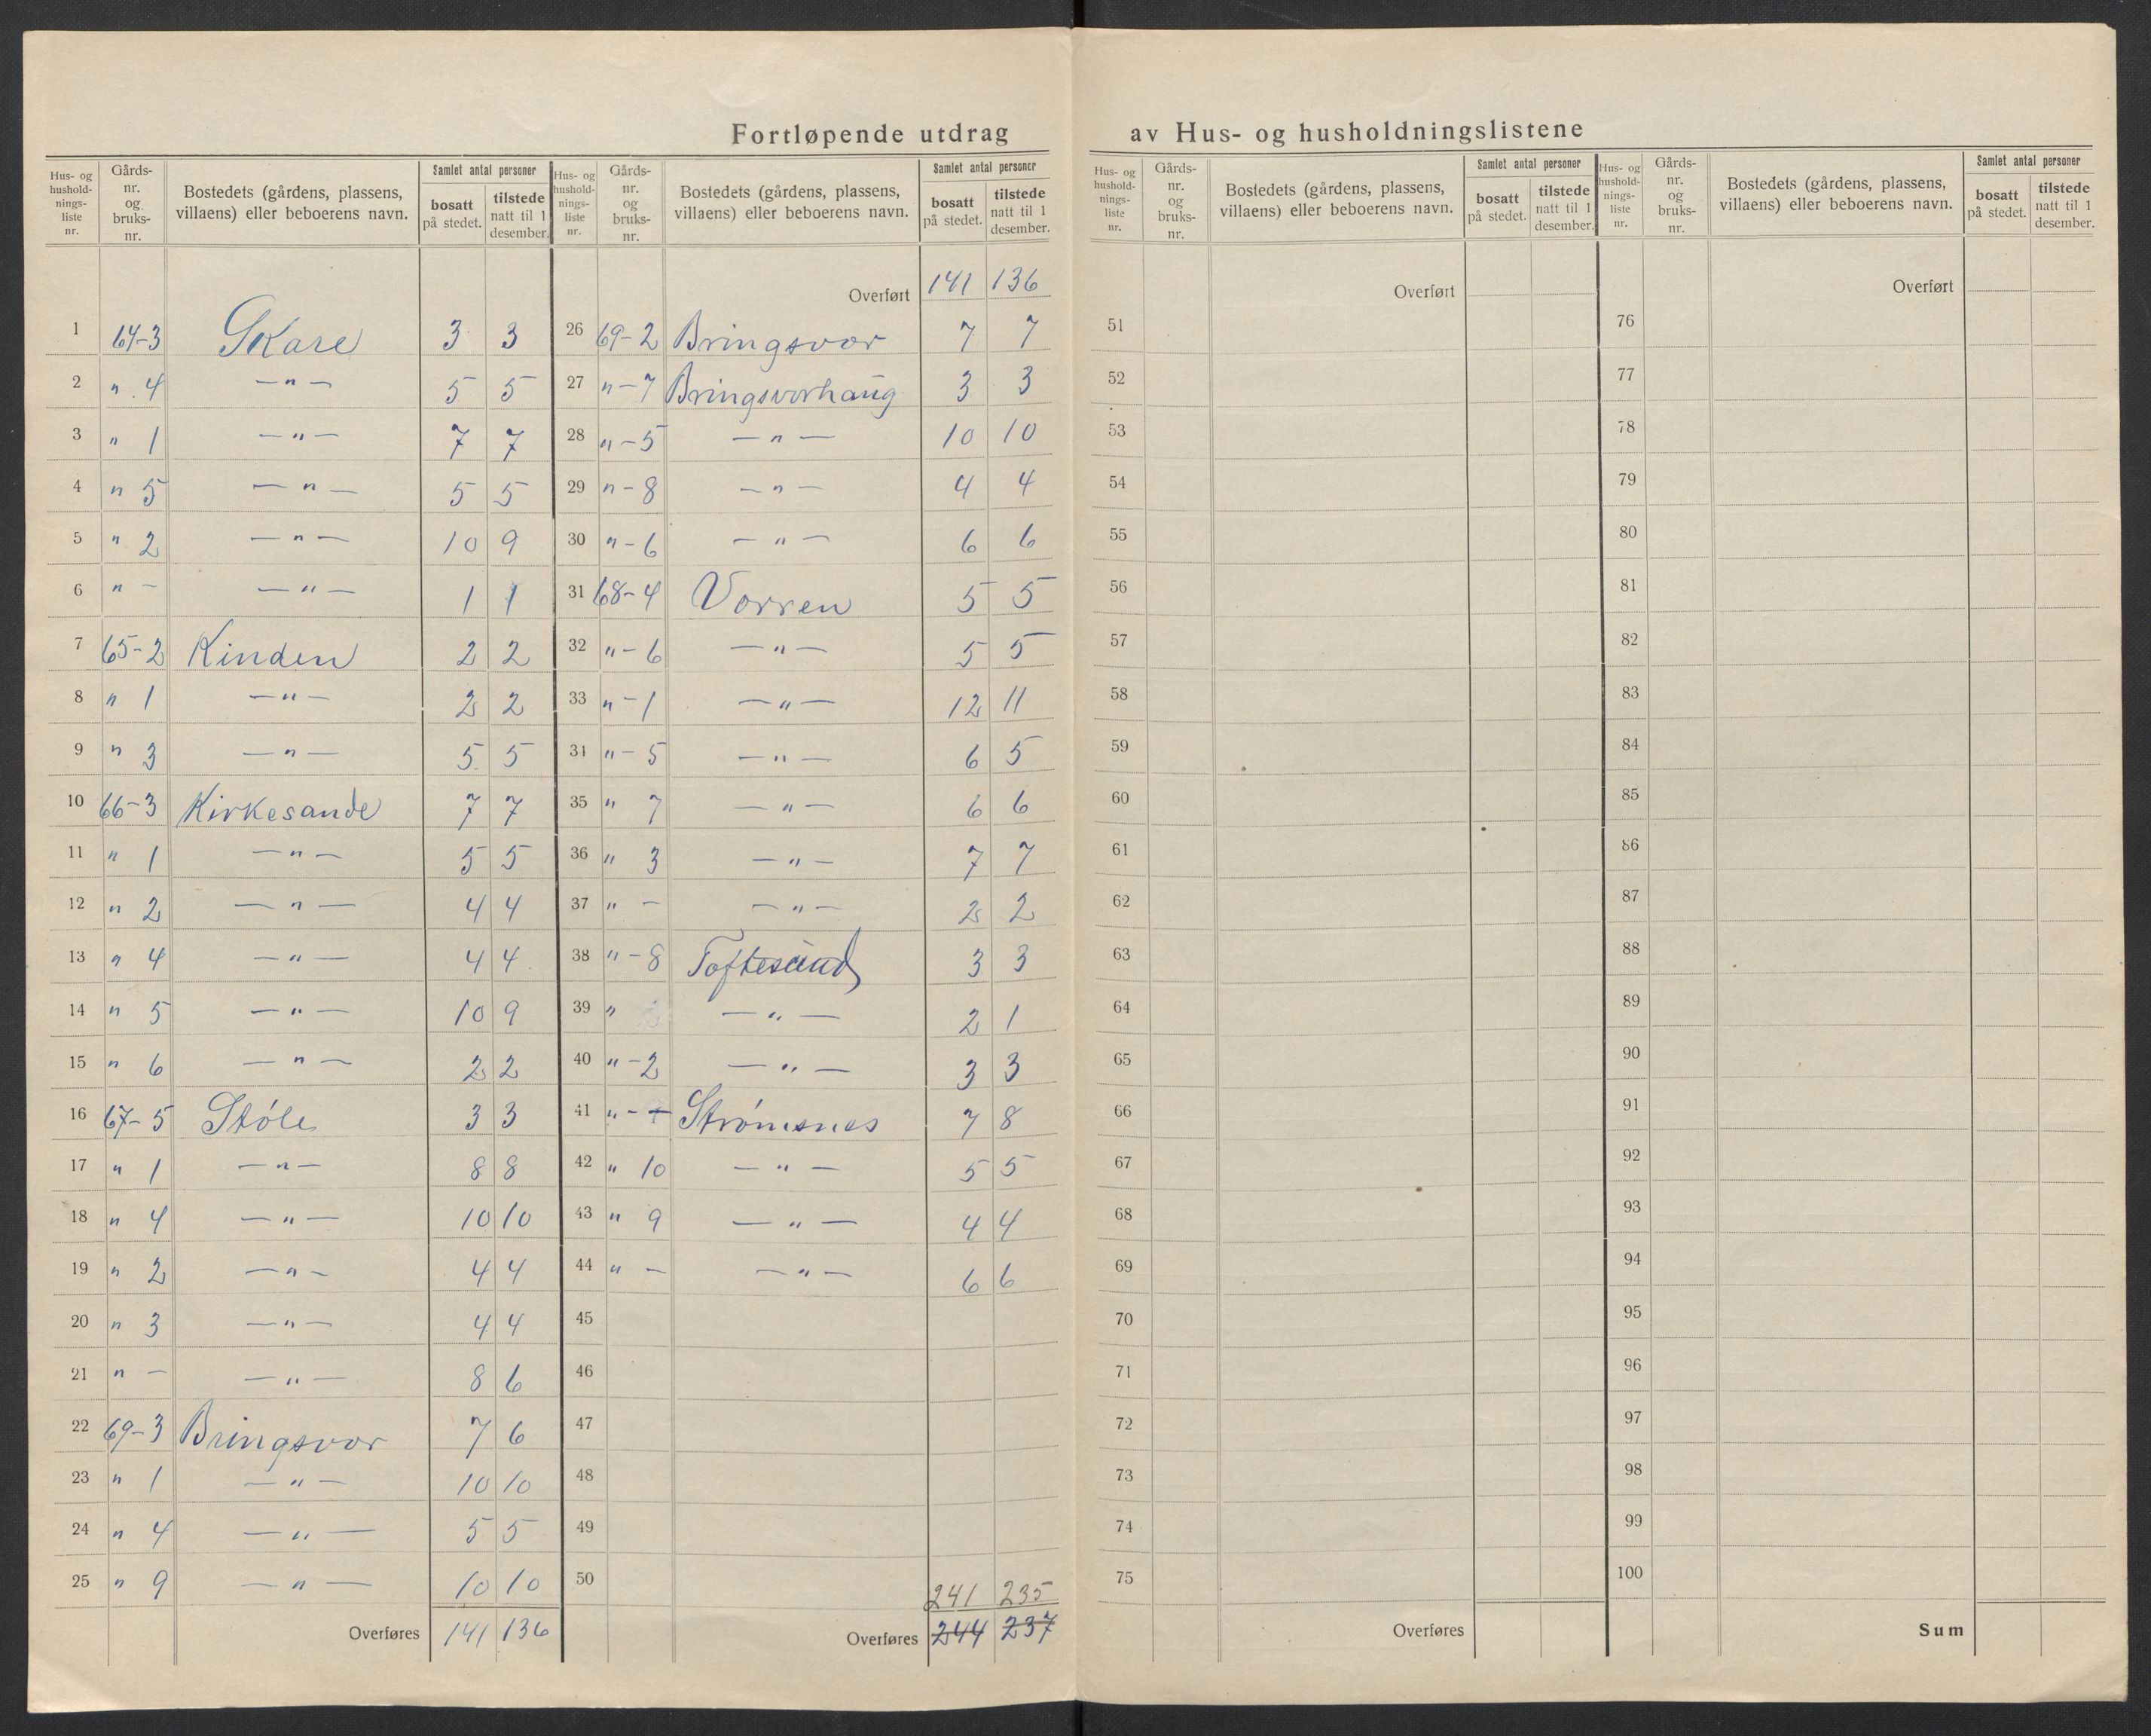 Fortløpende utdrag av Hus- og husholdningslistene
Hus- og hushold-nings-liste nr. | Gårds-nr. og bruks-nr. | Bostedets (gårdens, plassens, villaens) eller beboerens navn. | Samlet antal personer | bosatt på stedet. | tilstede natt til 1 desember.
1 64-3 Skare 3 3
2 " 4 —"— 5 5
3 " 1 —"— 7 7
4 " 5 —"— 5 5
5 " 2 —"— 10 9
6 " - —"— 1 1
7 65-2 Kinden 2 2
8 " 1 —"— 2 2
9 " 3 —"— 5 5
10 66-3 Kirkesande 7 7
11 " 1 —"— 5 5
12 " 2 —"— 4 4
13 " 4 —"— 4 4
14 " 5 —"— 10 9
15 " 6 —"— 2 2
16 67-5 Støle 3 3
17 " 1 —"— 8 8
18 " 4 —"— 10 10
19 " 2 —"— 4 4
20 " 3 —"— 4 4
21 " - —"— 8 6
22 69-3 Bringsvor 7 6
23 " 1 —"— 10 10
24 " 4 —"— 5 5
25 " 9 —"— 10 10
Overføres 141 136
Hus- og hushold-nings-liste nr. | Gårds-nr. og bruks-nr. | Bostedets (gårdens, plassens, villaens) eller beboerens navn. | Samlet antal personer | bosatt på stedet. | tilstede natt til 1 desember.
Overført 141 136
26 69-2 Bringsvor 7 7
27 "-7 Bringsvorhaug 3 3
28 "-5 —"— 10 10
29 "-8 —"— 4 4
30 "-6 —"— 6 6
31 68-4 Vorren 5 5
32 "-6 —"— 5 5
33 "-1 —"— 12 11
34 "-5 —"— 6 5
35 " 7 —"— 6 6
36 " 3 —"— 7 7
37 " - —"— 2 2
38 "-8 Toftesund 3 3
39 " —"— 2 1
40 "-2 —"— 3 3
41 "-- Strømsnes 7 8
42 " 10 —"— 5 5
43 " 9 —"— 4 4
44 " - —"— 6 6
45
46
47
48
49
50
241 235
Overføres 244 237
Hus- og hushold-nings-liste nr. | Gårds-nr. og bruks-nr. | Bostedets (gårdens, plassens, villaens) eller beboerens navn. | Samlet antal personer | bosatt på stedet. | tilstede natt til 1 desember.
Overført
51
52
53
54
55
56
57
58
59
60
61
62
63
64
65
66
67
68
69
70
71
72
73
74
75
Overføres
Hus- og hushold-nings-liste nr. | Gårds-nr. og bruks-nr. | Bostedets (gårdens, plassens, villaens) eller beboerens navn. | Samlet antal personer | bosatt på stedet. | tilstede natt til 1 desember.
Overført
76
77
78
79
80
81
82
83
84
85
86
87
88
89
90
91
92
93
94
95
96
97
98
99
100
Sum